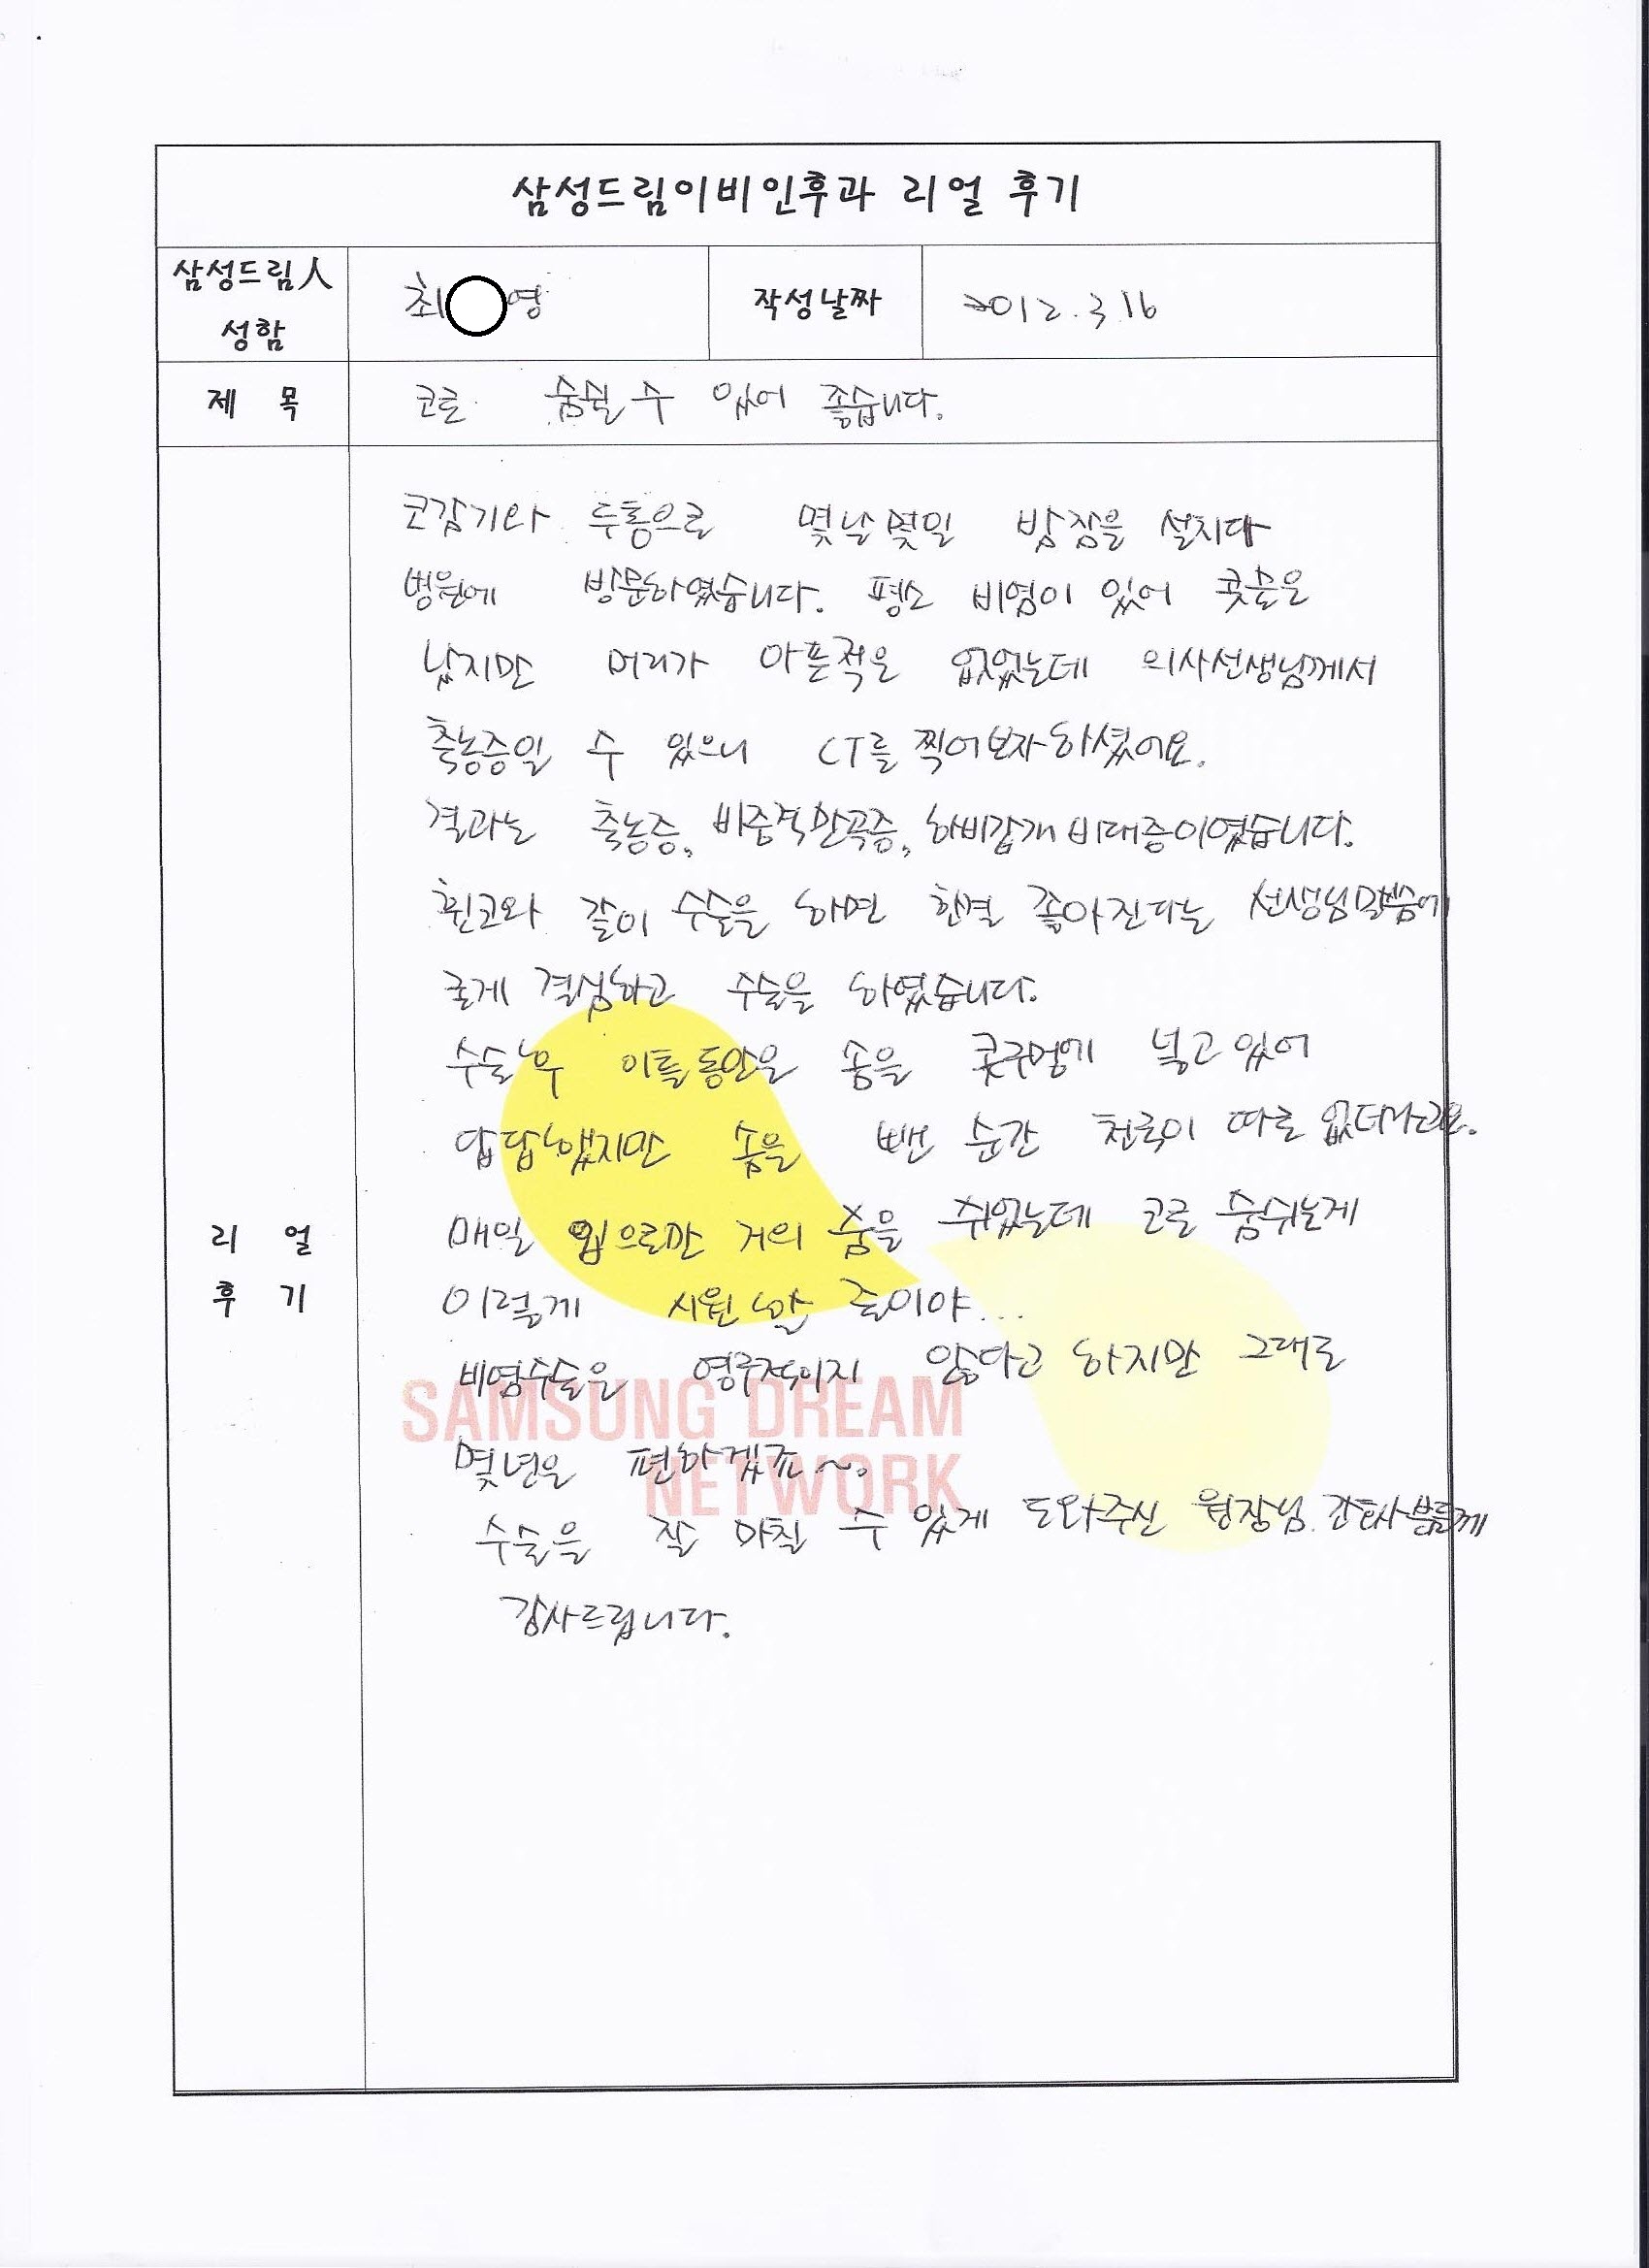 삼성드림이비인후과 리얼 후기
삼성드림人 성함
최 영
작성날짜
2012. 3. 16
제 목
코로 숨쉴 수 있어 좋습니다.
리 얼 후 기
코감기와 두통으로 몇날 몇일 밤잠을 설치다
병원에 방문하였습니다. 평소 비염이 있어 콧물은
났지만 머리가 아픈적은 없었는데 의사선생님께서
축농증일 수 있으니 CT를 찍어보자하셨어요.
결과는 축농증, 비중격만곡증, 하비갑개 비대증이였습니다.
휜코와 같이 수술을 하면 한결 좋아진다는 선생님말씀에
굳게 결심하고 수술을 하였습니다.
수술후 이틀동안은 솜을 콧구멍에 넣고 있어
답답했지만 솜을 뺀 순간 천국이 따로 없더라고요.
매일 입으로만 거의 숨을 쉬었는데 코로 숨쉬는게
이렇게 시원한 줄이야...
비염수술은 영구적이지 않다고 하지만 그래도
몇년은 편하겠죠~.
수술을 잘 마칠 수 있게 도와주신 원장님. 간호사분들께
감사드립니다.
SAMSUNG DREAM
NETWORK